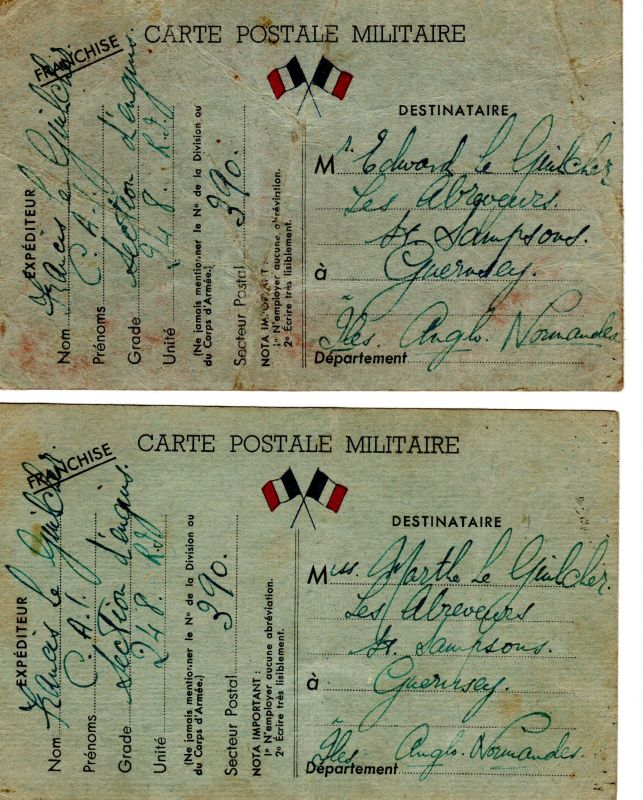 CARTE POSTALE MILITAIRE
FRANCHISE
EXPÉDITEUR
Nom Francis le Guilcher
Prénoms C.A.I.
Grade Section d'engins.
Unité 248. R.I.
(Ne jamais mentionner le Nº de la Division ou
du Corps d'Armée.)
Secteur Postal 390.
NOTA IMPORTANT :
1º N'employer aucune abréviation.
2º Écrire très lisiblement.
DESTINATAIRE
Mr. Edward Le Guilcher.
Les Abreveurs.
St. Sampsons.
à Guernsey.
Îles. Anglo. Normandes
Département
CARTE POSTALE MILITAIRE
FRANCHISE
EXPÉDITEUR
Nom Francis le Guilcher
Prénoms C.A.I.
Grade Section d'engins.
Unité 248. R.I.
(Ne jamais mentionner le Nº de la Division ou
du Corps d'Armée.)
Secteur Postal 390.
NOTA IMPORTANT :
1º N'employer aucune abréviation.
2º Écrire très lisiblement.
DESTINATAIRE
Miss. Marthe Le Guilcher.
Les Abreveurs
St. Sampsons.
à Guernsey.
Îles Anglo. Normandes.
Département